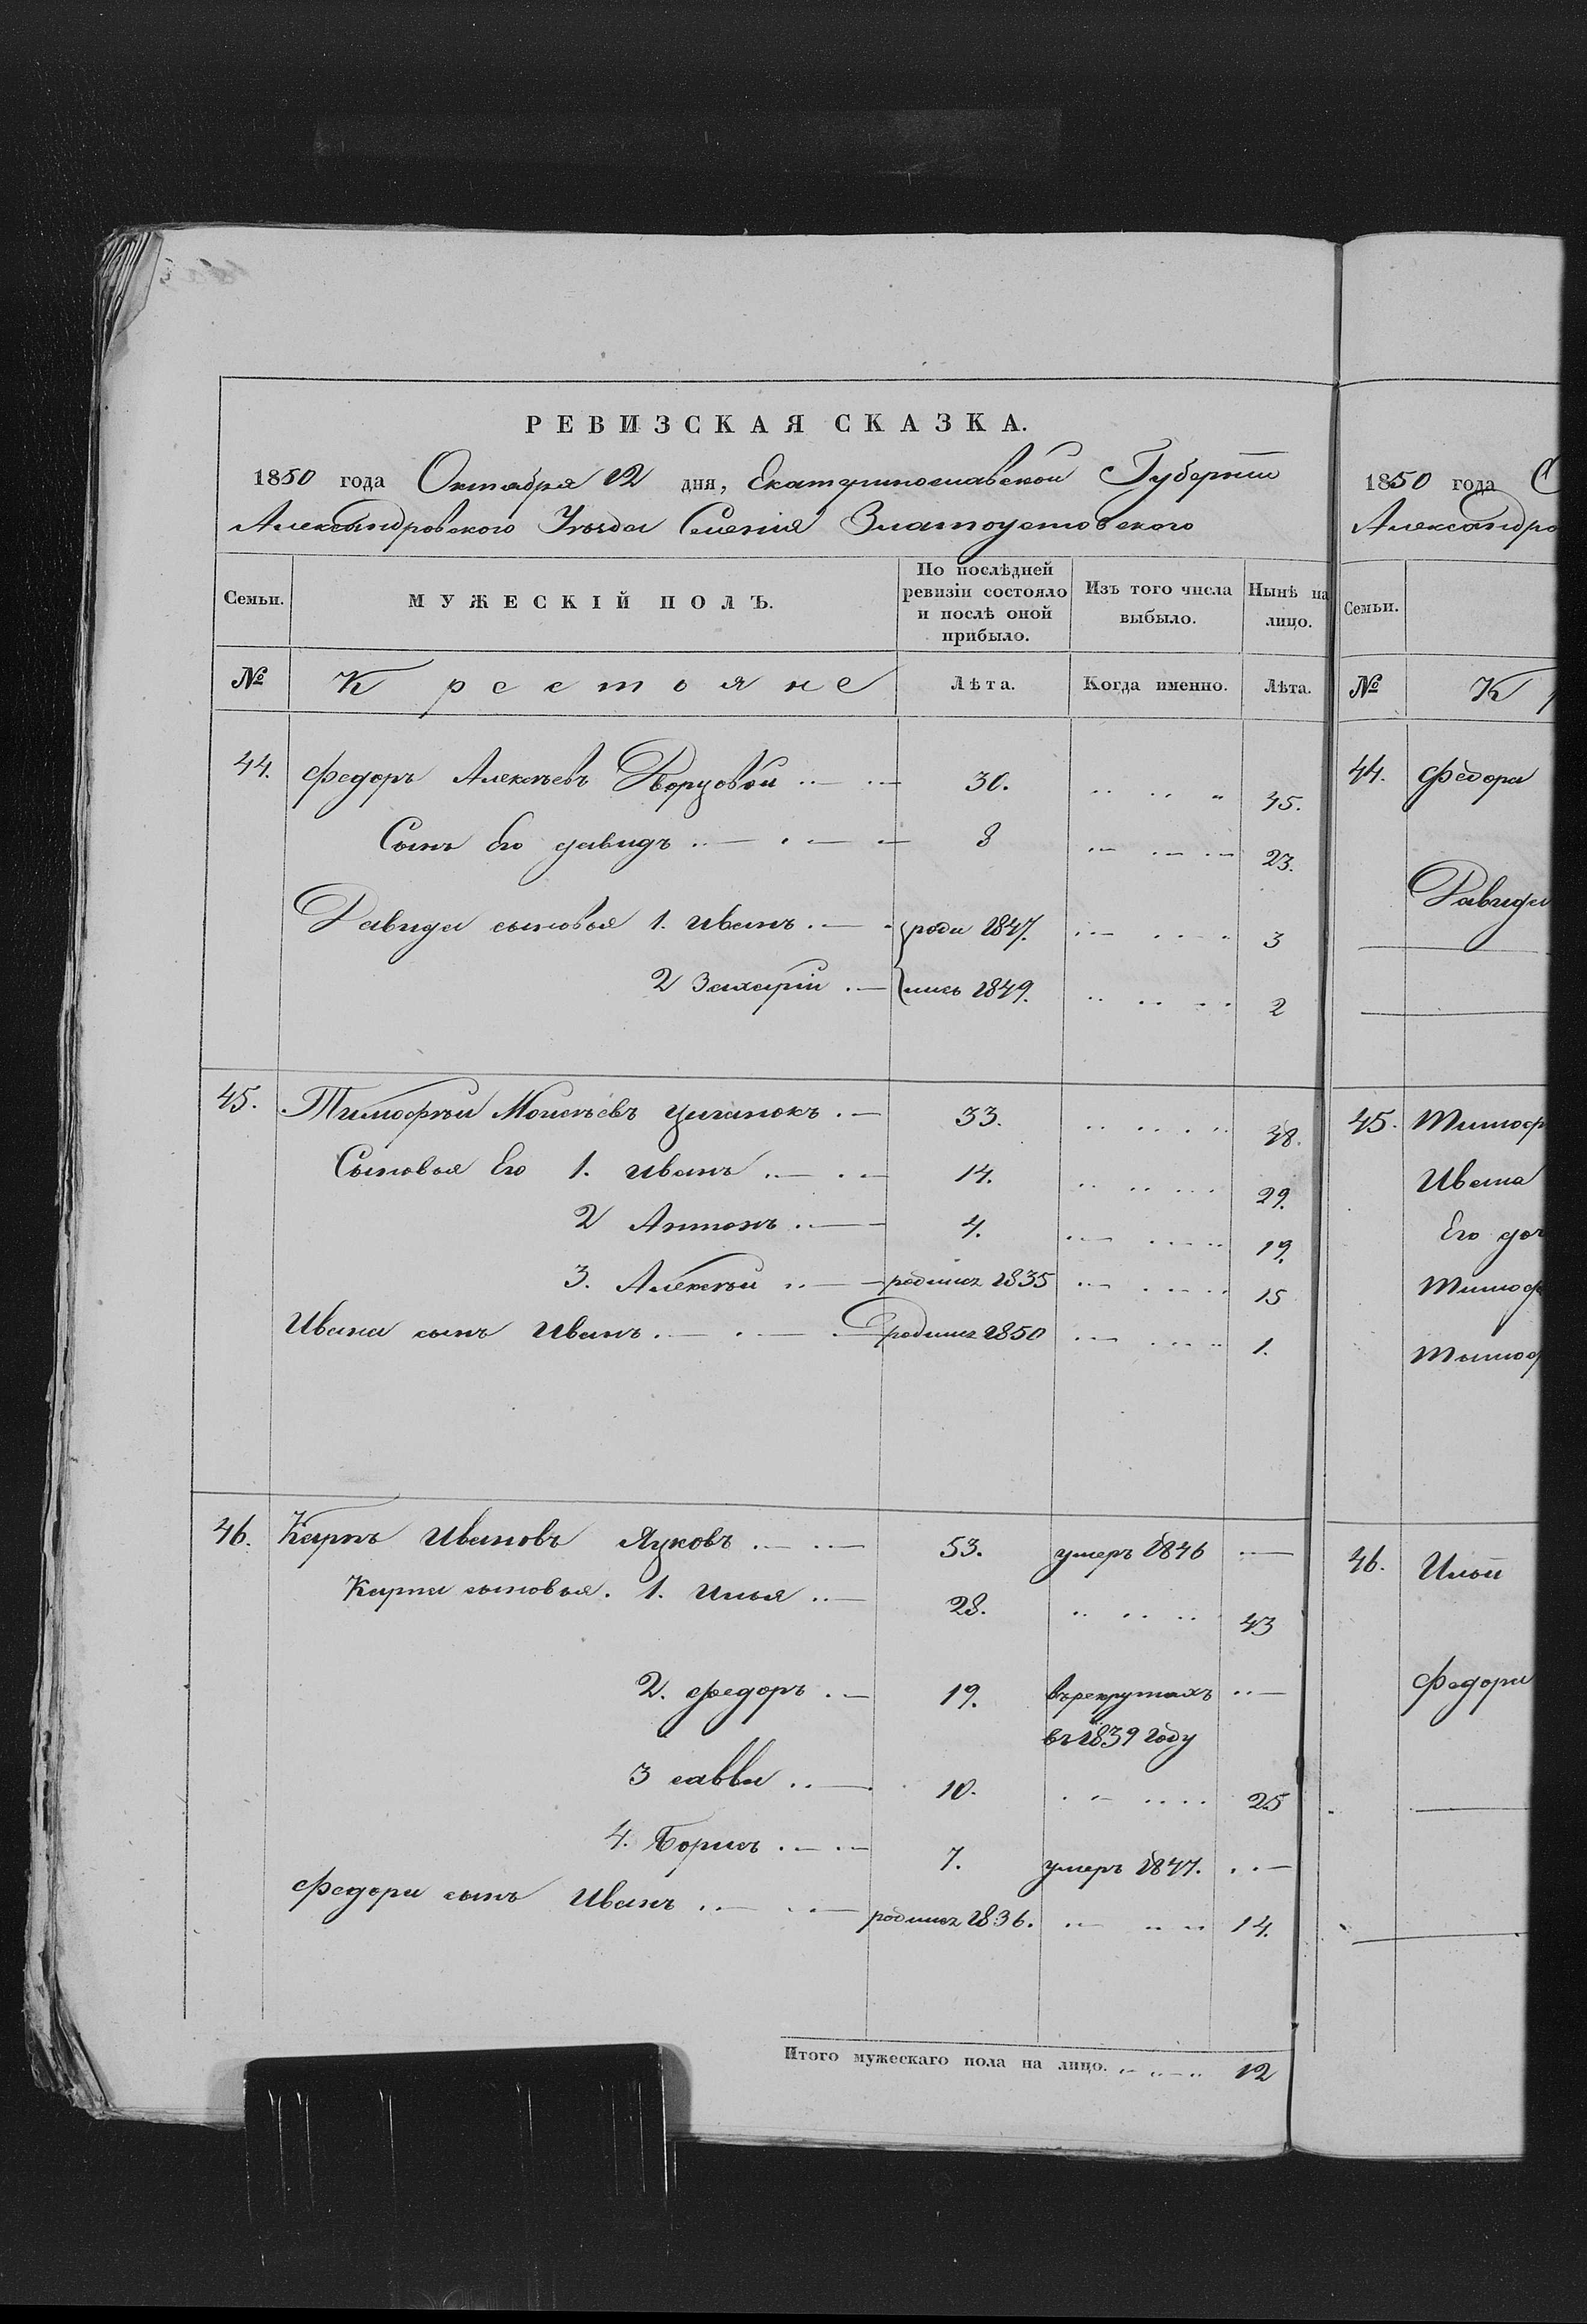 РЕВИЗСКАЯ СКАЗКА.
1850 года Октября 12 дня, Екатеринославской Губернiи
Александровского Уѣзда Селенiя Златоустовского
Семьи. МУЖЕСКІЙ ПОЛЪ. По послѣдней ревизіи состояло и послѣ оной прибыло. Изъ того числа выбыло. Нынѣ на лицо.
№ Крестьяне Лѣта. Когда именно. Лѣта.
44. Федоръ Алексѣевъ Дворцовой 30. 45.
Сынъ Его Давидъ 8 23.
Давида сыновья 1. Иванъ роди 1847. 3
2 Захарiй лись 1849. 2
45. Тимофѣй Моисѣевъ Циганокъ 33. 48.
Сыновья Его 1. Иванъ 14. 29.
2 Антонъ 4. 19.
3. Алексѣй родился 1835 15
Ивана сынъ Иванъ родился 1850 1.
46. Карпъ Ивановъ Яцковъ 53. умеръ 1846
Карпа сыновья. 1. Илья 28. 43
2. Федоръ 19. въ рекрутахъ
въ 1839 году
3 Савва 10. 25
4. Борисъ 7. умеръ 1847.
Федора сынъ Иванъ родился 1836. 14.
Итого мужескаго пола на лицо. 12
1850 года
Александро
Семьи.
№ К
44. Федора
Давида
45. Тимоф
Ивана
Его доч
Тимоф
Тимоф
46. Ильи
Федора